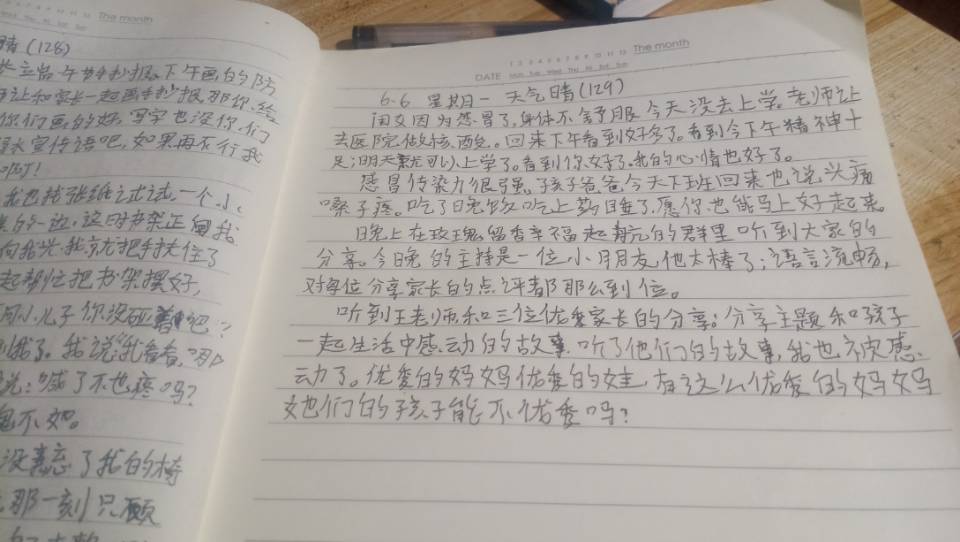 The month
晴(128)
下午画的防
和家长一起画手抄报,那你给
你们画的好,写字也没你们
宣传语吧,如果再不行我
啊!
我也找张纸试试,一个小
的一边,这时书架正倒我
向我,我就把手扶住了
起帮忙把书架摆好,
儿子你没砸着吧?
我了。我说我看看,
喊了不也疼吗?
不如。
没忘了我的
那一刻只顾
1 2 3 4 5 6 7 8 9 10 11 12 The month
DATE Mon Tue Wed Thu Fri Sat Sun
6.6 星期一 天气晴(129)
因为感冒了,身体不舒服今天没去上学。老师让
去医院做核酸。回来下午看到好多了。看到今下午精神十
足;明天就可以上学了。看到你好了。我的心情也好了。
感冒传染力很强,孩子爸爸今天下班回来也说头痛
嗓子疼。吃了晚饭吃上药睡了,愿你也能马上好起来。
晚上在玫瑰留香幸福起航的群里听到大家的
分享。今晚的主持是一位小朋友,他太棒了;语言流畅,
对每位分享家长的点评都那么到位。
听到王老师和三位优秀家长的分享。分享主题和孩子
一起生活中感动的故事,听了他们的故事,我也被感
动了。优秀的妈妈优秀的娃,有这么优秀的妈妈
她们的孩子能不优秀吗?